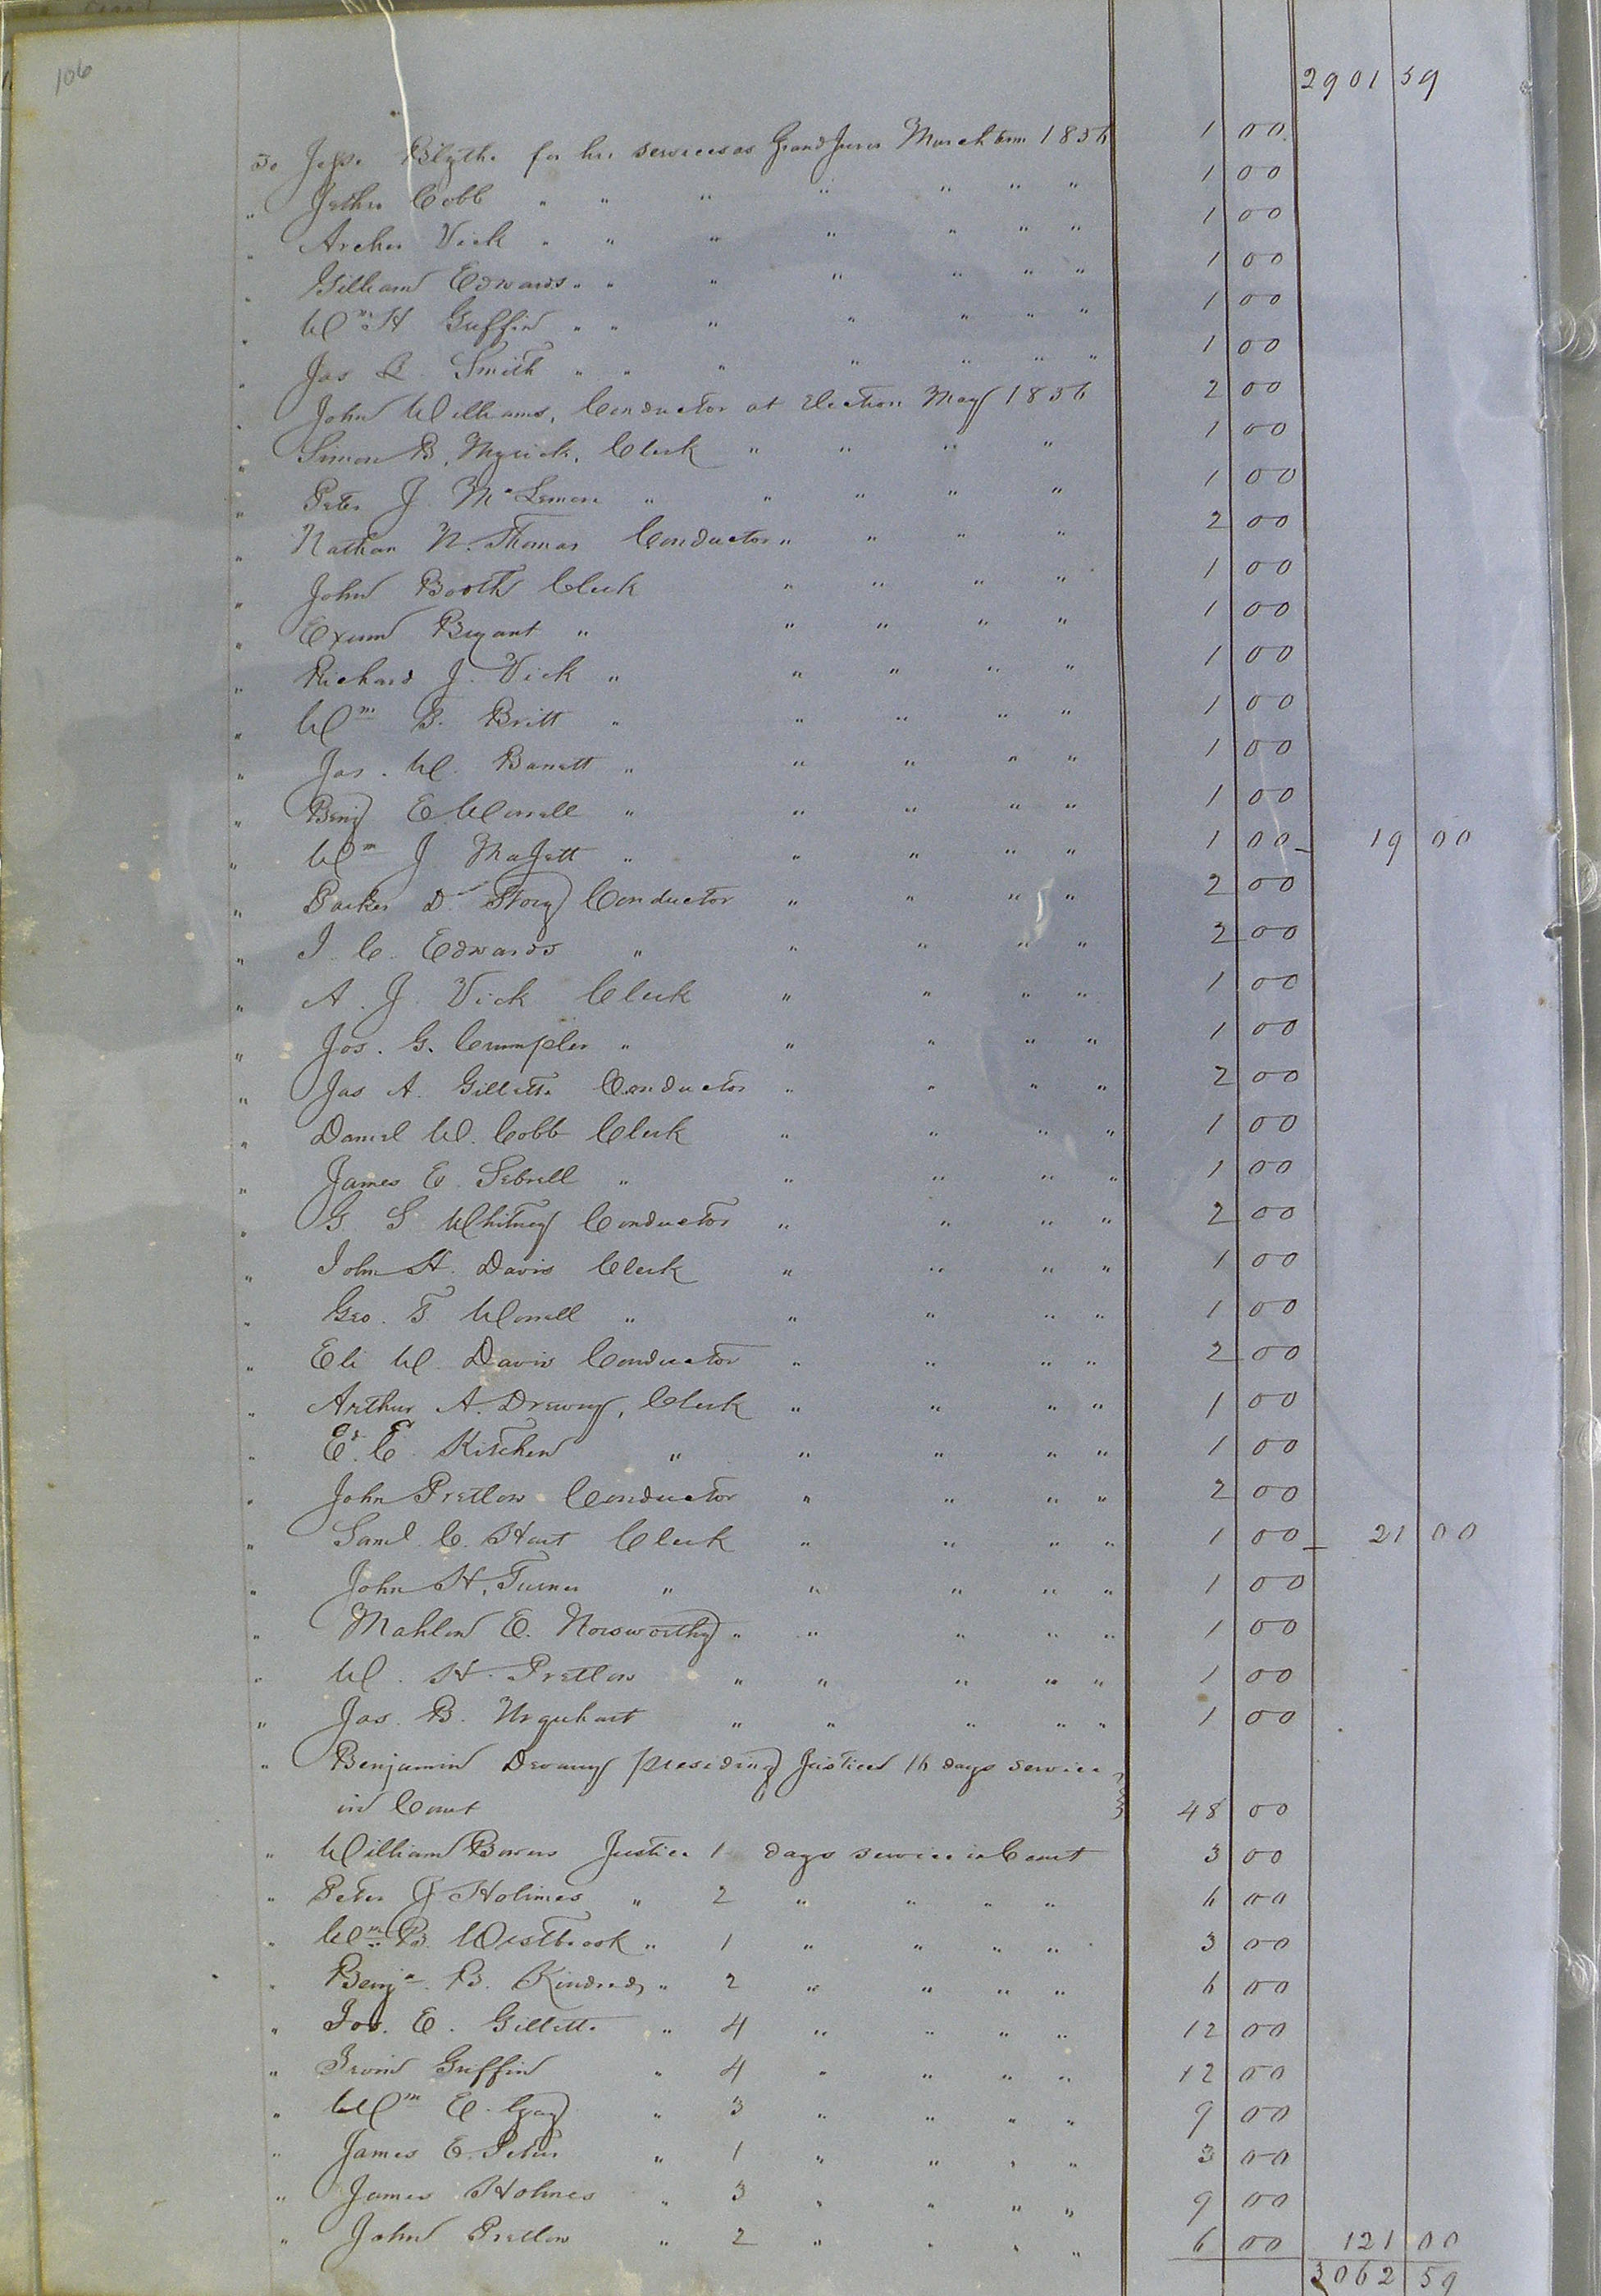 106
2901 59
To Jesse Blythe for his services as Grand Juror March term 1856 1 00
" Jethro Cobb " " " " " " " 1 00
" Archer Vick " " " " " " " 1 00
" Gilliam Edwards " " " " " " " 1 00
" Wm H Griffin " " " " " " " 1 00
" Jas R. Smith " " " " " " " 1 00
" John Williams, Conductor at Election May 1856 2 00
" Simon B. Myrick, Clerk " " " " 1 00
" Peter J. McLemore " " " " " 1 00
" Nathan N. Thomas Conductor " " " " 2 00
" John Booth Clerk " " " " 1 00
" Exum Bryant " " " " " 1 00
" Richard J. Vick " " " " " 1 00
" Wm B. Britt " " " " " 1 00
" Jas. W. Barrett " " " " " 1 00
" Benj E. Worrell " " " " " 1 00
" Wm J Majett " " " " " 1 00 19 00
" Parker D. Story Conductor " " " " 2 00
" J. C. Edwards " " " " " 2 00
" A. J. Vick Clerk " " " " 1 00
" Jos. G. Crumpler " " " " " 1 00
" Jas A. Gillette Conductor " " " " 2 00
" Daniel W. Cobb Clerk " " " " 1 00
" James E. Sebrell " " " " " 1 00
" G. S Whitney Conductor " " " " 2 00
" John H. Davis Clerk " " " " 1 00
" Geo. T Worrell " " " " " 1 00
" Eli W. Davis Conductor " " " " 2 00
" Arthur A. Drewry, Clerk " " " " 1 00
" Ed. E. Kitchen " " " " " 1 00
" John Pretlow Conductor " " " " 2 00
" Saml. C. Hart Clerk " " " " 1 00 21 00
" John H. Turner " " " " " 1 00
" Mahlon E. Norsworthy " " " " " 1 00
" W. H. Pretlow " " " " " 1 00
" Jas. B. Urquhart " " " " " 1 00
" Benjamin Devany presiding Justice 16 days service
in Court 48 00
" William Bowers Justice 1 days service in Court 3 00
" Peter J Holmes " 2 " " " " 6 00
" Wm B. Westbrook " 1 " " " " 3 00
" Benja. B. Kindred " 2 " " " " 6 00
" Jos. E. Gillette " 4 " " " " 12 00
" Irvin Griffin " 4 " " " " 12 00
" Wm E. Gay " 3 " " " " 9 00
" James E. Peter " 1 " " " " 3 00
" James Holmes " 3 " " " " 9 00
" John Pretlow " 2 " " " " 6 00 121 00
3062 59